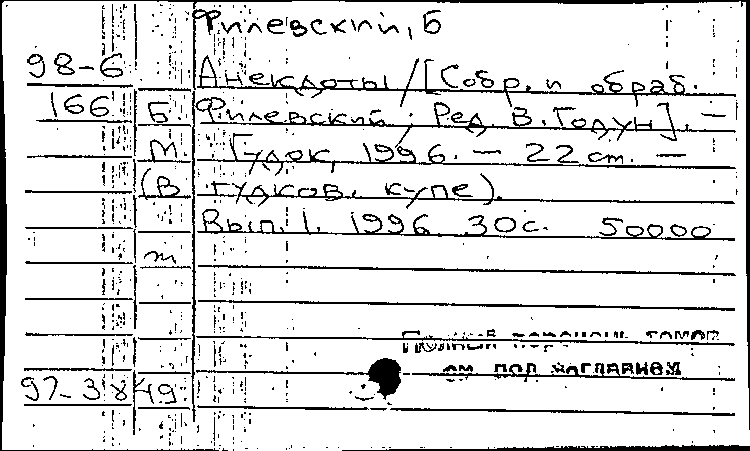 Филевский, Б
98-6 Анекдоты / [Собр. и обраб.
166 Б. Филевский; Ред. В. Годун]. –
М. Гудок, 1996. – 22 см. –
(В гудков. купе).
Вып. 1. 1996. 30с. 50000
т
Полный перечень томов
см под заглавием
97-3849